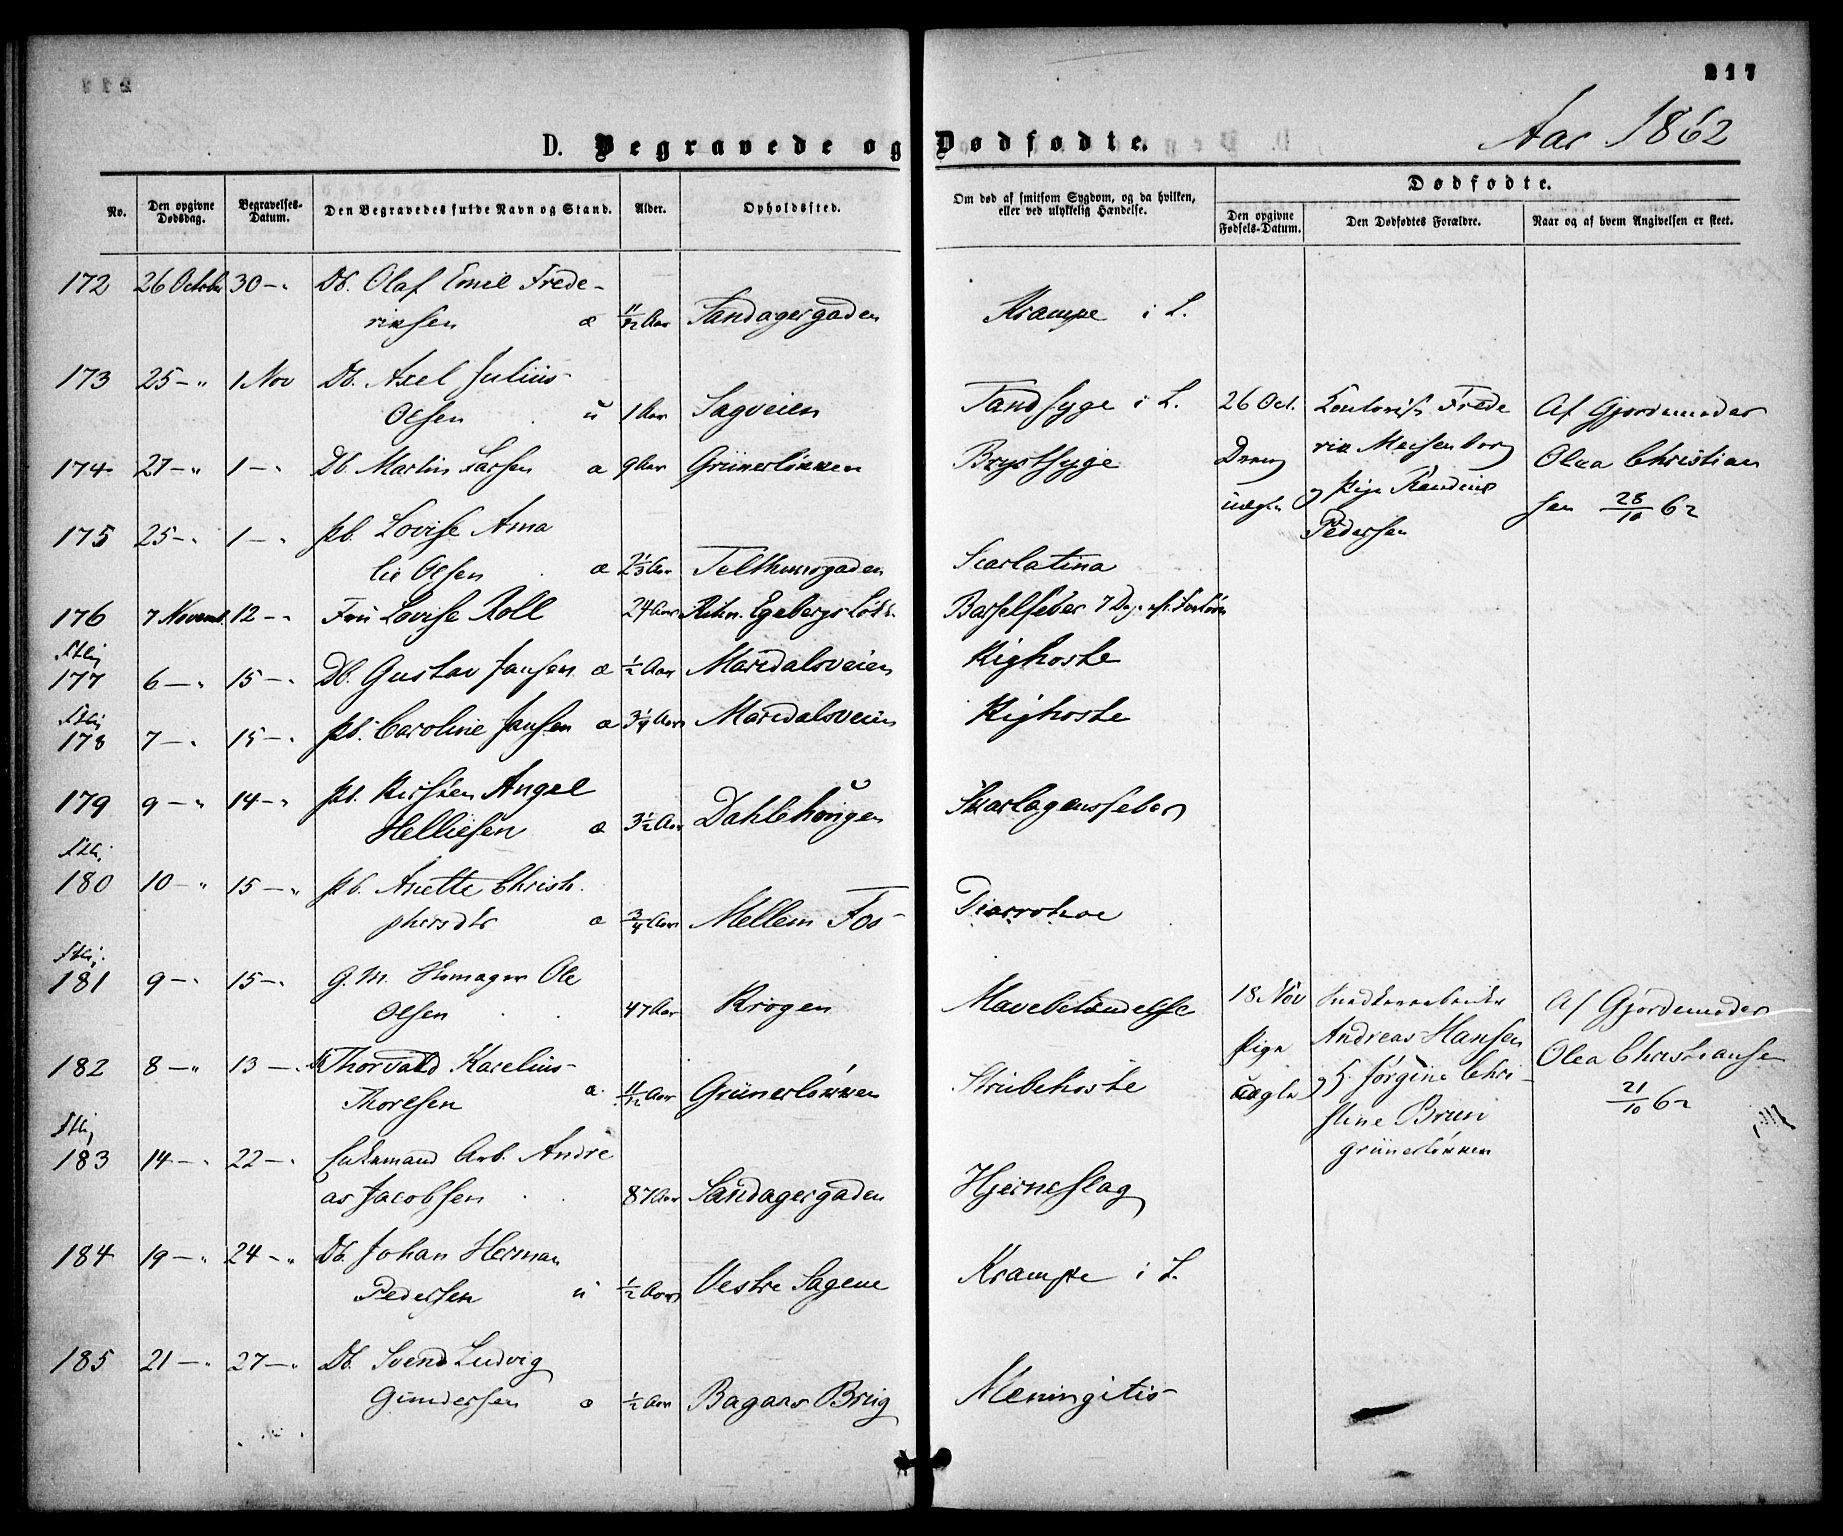 217
Aar 1862
D. Begravede og Dødfødte.
No. Den opgivne Dødsdag. Begravelses-Datum. Den Begravedes fulde Navn og Stand. Alder. Opholdssted. Om død af smitsom Sygdom, og da hvilken, eller ved ulykkelig Hændelse.
Dødfødte.
Den opgivne Fødsels-Datum. Den Dødfødtes Forældre. Naar og af hvem Angivelsen er skeet.
172 26 October 30 — " Db. Olaf Emil Frede-
riksen æ 11/12 Aar Sandagergaden Krampe i L.
173 25 — " 1 Nov Db. Axel Julius
Olsen u 1 Aar Sagveien Tandsyge i L.
26 Oct. Frede Af Gjordemoder
174 27 — " 1 — " Db. Martin Larsen æ 9 Aar Grünerløkken Brystsyge
Dreng rik Meisenborg Olea Christian
uægte og Pige Randine sen 28/10 62
Pedersen
175 25 — " 1 — " Pb. Lovise Ama
lie Olsen æ 2 1/3 Aar Telthusgaden Scarlatina
176 7 Novemb. 12 — " Fru Lovise Roll 24 Aar Egebergs Barselfeber 7 Dage
177 6 — " 15 — " Db. Gustav Jansen æ 1/2 Aar Maridalsveien Kighoste
178 7 — " 15 — " Pb. Caroline Jansen æ 3 1/4 Aar Maridalsveien Kighoste
179 9 — " 14 — " Pb. Kirsten Angel
Helliesen æ 3 1/2 Aar Dahlehougen Skarlagensfeber
180 10 — " 15 — " Pb. Anette Christo
phersdtr æ 3/4 Aar Mellem Fos Diarrohoe
181 9 — " 15 — " G. M. Skomager Ole
Olsen 47 Aar Krogen Mavebetændelse
18 Nov Snedkerarbeider Af Gjordemoder
Pige Andreas Hansen Olea Christiansen
uægte og P. Jørgine Chri- 21/10 62
stine Brun
Grünerløkken
182 8 — " 13 — " Db Thorvald Karelius
Thoresen æ 11/12 Aar Grünerløkken Strubehoste
183 14 — " 22 — " Enkemand Arb. Andre
as Jacobsen 87 Aar Sandagergaden Hjerneslag
184 19 — " 24 — " Db. Johan Herman
Pedersen u 1/2 Aar Vestre Sagene Krampe i L.
185 21 — " 27 — " Db. Svend Ludvig
Gundersen æ 1/2 Aar Bagaas Brug Meningitis